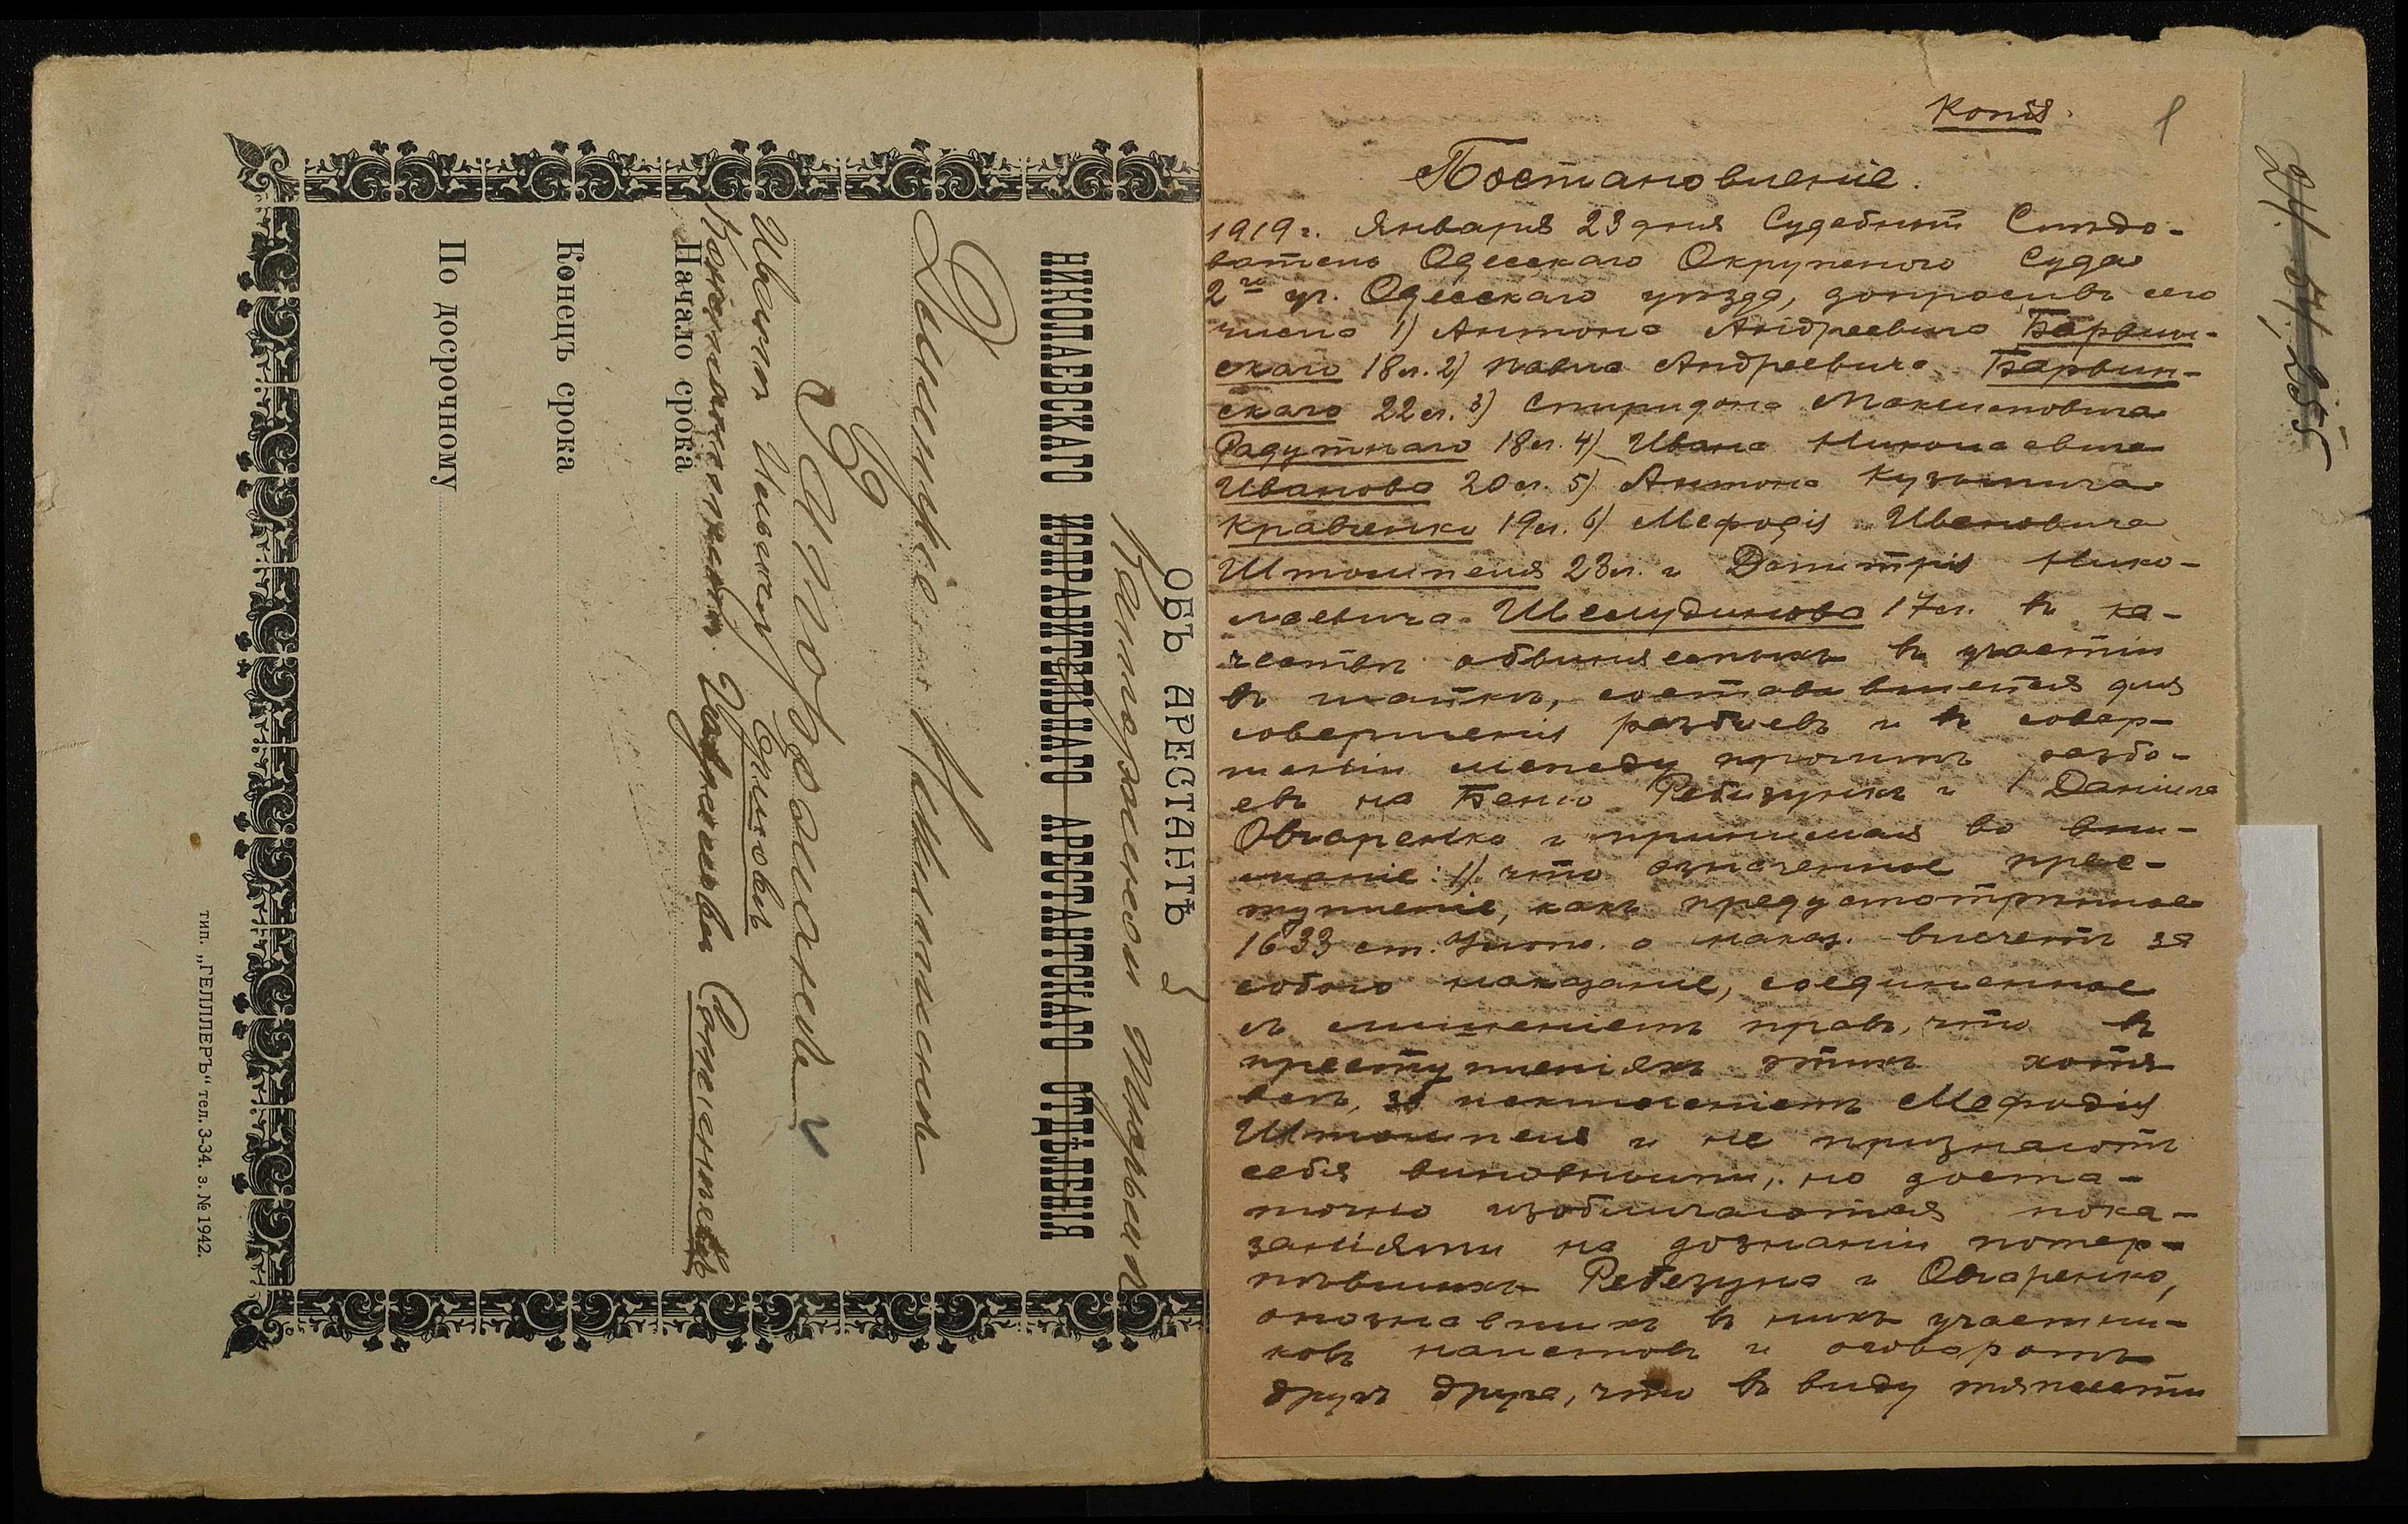 ОБЪ АРЕСТАНТѢ
Каторжной тюрьмы
НИКОЛАЕВСКАГО ИСПРАВИТЕЛЬНАГО АРЕСТАНТСКАГО ОТДѢЛЕНІЯ
Дмитріе Никитинѣ
Ивант Ильичъ Епиховъ
Константинъ
Начало срока
Конецъ срока
По досрочному
тип. „ГЕЛЛЕРЪ“ тел. 3-34. з. № 1942.
Копія.
Постановленіе.
1919 г. Января 23 дня Судебный Слѣдо-
ватель Одесскаго Окружного Суда
2го уч. Одесскаго уѣзда, допросивъ сего
числа 1) Антона Андреевича Барвин-
скаго 18 л. 2) Павла Андреевича Барвин-
скаго 22 л. 3) Спиридона Максимовича
Радутнаго 18 л. 4) Ивана Николаевича
Иванова 20 л. 5) Антона Кузьмича
Кравченко 19 л. 6) Мефодія Ивановича
Штомпеля 23 л. и Дмитрія Нико-
лаевича Шелудикова 17 л. въ ка-
чествѣ обвиняемыхъ въ участіи
въ шайкѣ, составившейся для
совершенія разбоевъ и въ совер-
шеніи между прочимъ разбо-
евъ на Беню Ребизунъ и Даніила
Овчаренко и принимая во вни-
маніе: 1) что означенное прес-
тупленіе, какъ предусмотрѣнное
1633 ст. Улож. о наказ. влечетъ за
собою наказаніе, соединенное
съ лишеніемъ правъ, что въ
преступленіяхъ этихъ хотя
всѣ, за исключеніемъ Мефодія
Штомпеля и не признаютъ
себя виновными, но доста-
точно изобличаются пока-
заніями на дознаніи потер-
пѣвшихъ Ребезуна и Овчаренко,
опознавшихъ въ нихъ участни-
ковъ налетовъ и оговоромъ
другъ друга, что въ виду тяжести